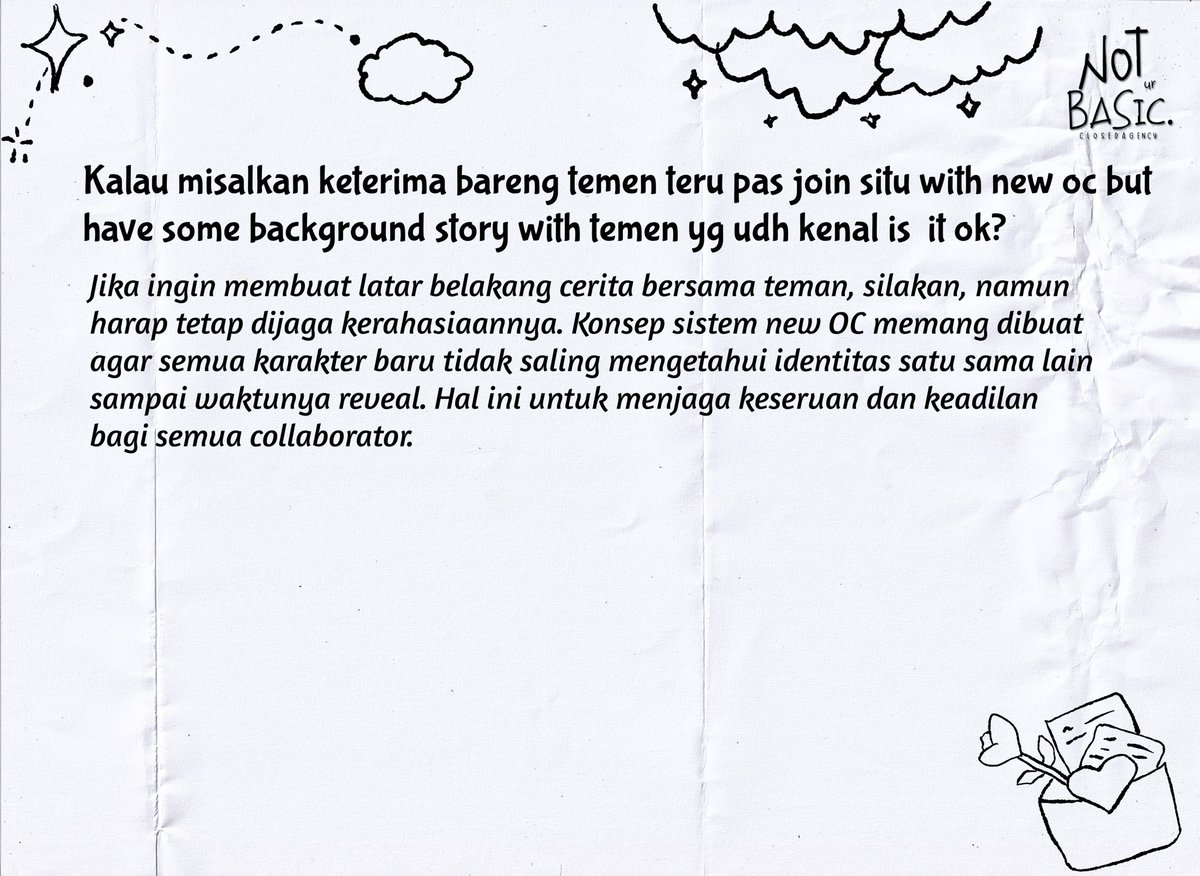 NOT
ur
BASIC.
CLOSEDAGENCY
Kalau misalkan keterima bareng temen teru pas join situ with new oc but
have some background story with temen yg udh kenal is it ok?
Jika ingin membuat latar belakang cerita bersama teman, silakan, namun
harap tetap dijaga kerahasiaannya. Konsep sistem new OC memang dibuat
agar semua karakter baru tidak saling mengetahui identitas satu sama lain
sampai waktunya reveal. Hal ini untuk menjaga keseruan dan keadilan
bagi semua collaborator.